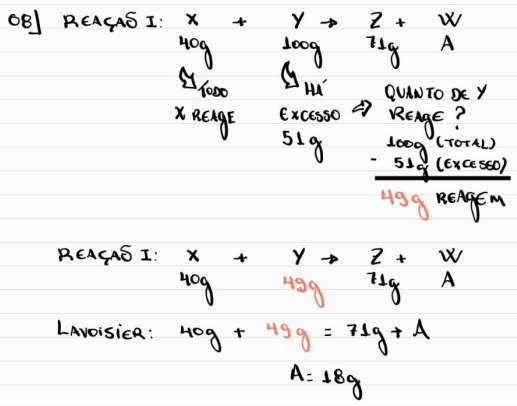 08] REAÇÃO I: X + Y → Z + W
40g 100g 71g A
TODO HÁ
X REAGE EXCESSO ⇒ QUANTO DE Y REAGE ?
51g
100g (TOTAL)
- 51g (EXCESSO)
49g REAGEM
REAÇÃO I: X + Y → Z + W
40g 49g 71g A
LAVOISIER: 40g + 49g = 71g + A
A = 18g